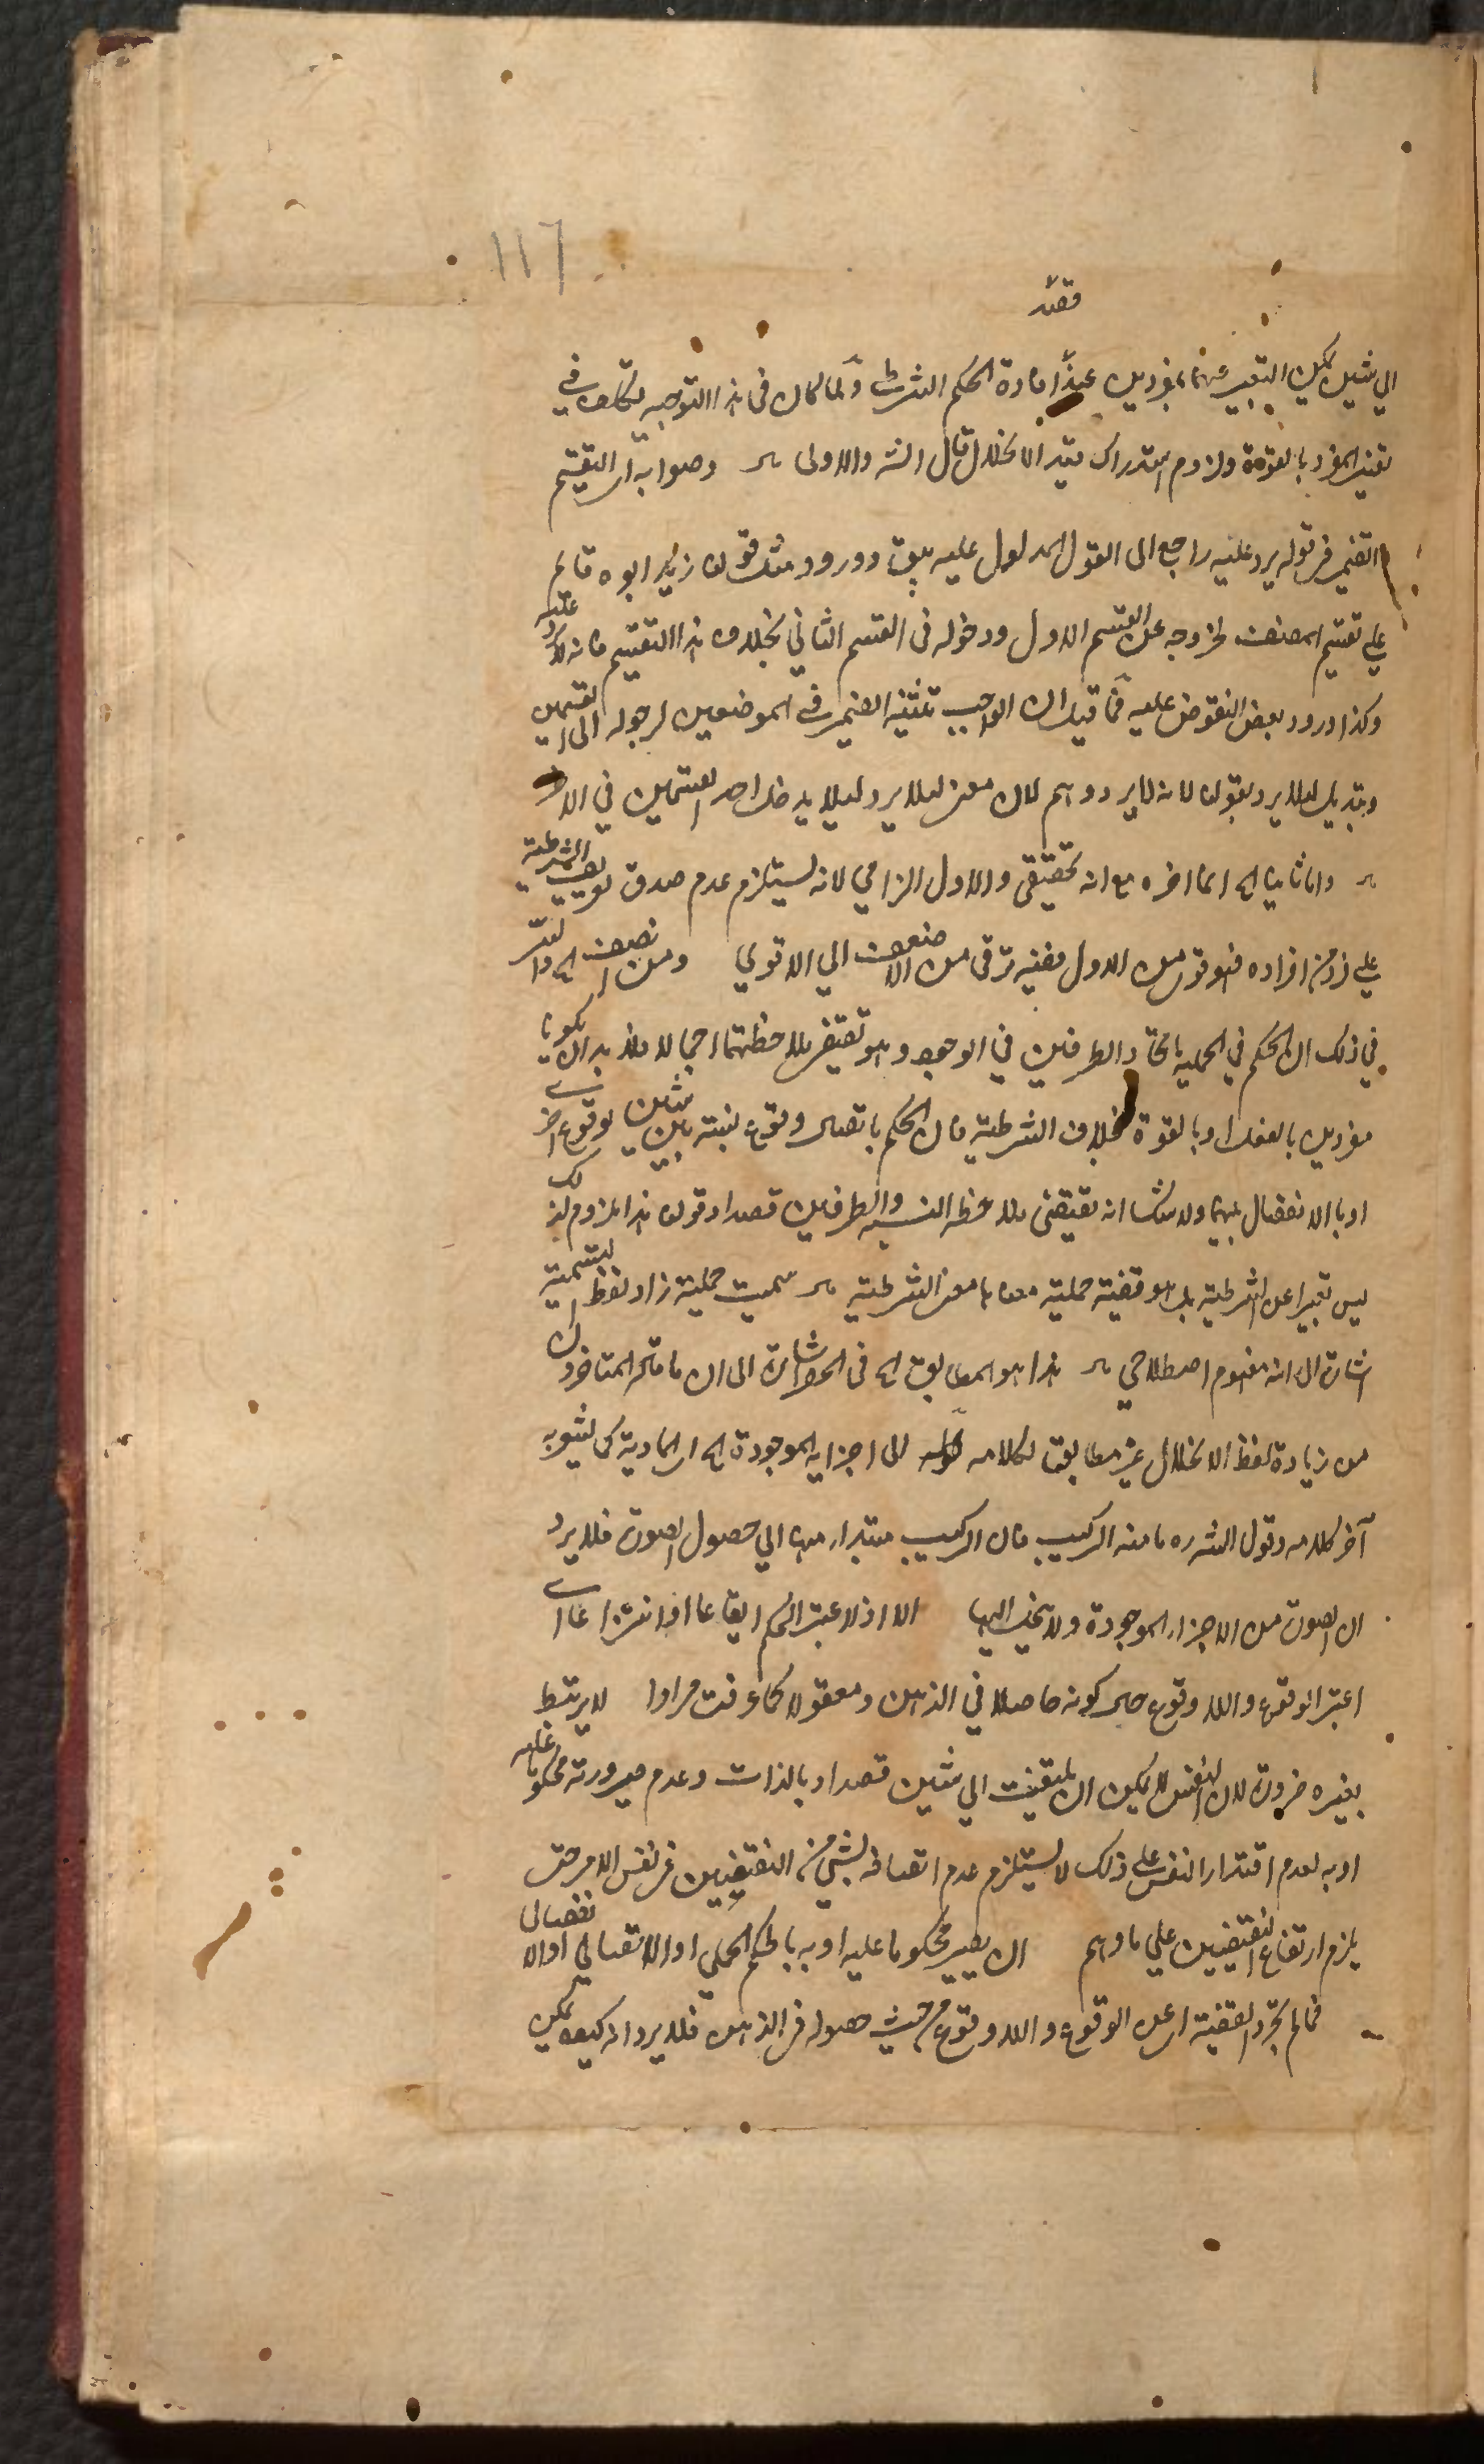 117
فقيد
الي شيئين يمكن التعبير عنهما بمفردين عند افادة الحكم الشرطي ولما كان في هذا التوجيه تكلف في
تفسير المفرد بالقوة ولزوم استدراك قيد الانحلال قال الش والاولى وصوابه ان التقسيم
الضمير في قوله يرد عليه راجع الى القول المدلول عليه بسبق دورود مثل قولن زيد ابوه قائم
علي تقسيم المصنف لخروجه عن القسم الاول ودخوله في القسم الثاني بخلاف هذا التقسيم فانه لا يرد عليه
وكذا ورود بعض النقوض عليه فما قيل ان الواجب تثنية الضمير في الموضعين لرجوعه الى القسمين
وتبديل لئلا يرد بقوله لانه لا يرد وهم لان معنى لئلا يرد لئلا يدخل احد القسمين في الاخر
واما ثانيا الخ انما اخره مع انه تحقيقي والاول الزامي لانه يستلزم عدم صدق تعريف الشرطية
علي فرد من افراده فهو فوق من الاول ففيه ترقى من الاضعف الي الاقوي ومن انصف الخ والسر
في ذلك ان الحكم في الحملية باتحاد الطرفين في الوجود وهو تقتضي ملاحظتهما اجمالا فلا بد ان يكونا
مفردين بالفعل او بالقوة بخلاف الشرطية فان الحكم باتصال وقوع نسبة بين شيئين بوقوع اخري
او بالانفصال بينهما ولا شك انه يقتضي ملاحظة النسبة والطرفين قصدا وقولن هذا ملزوم لذلك
ليس تعبيرا عن الشرطية بل هو قضية حملية معناها معنى الشرطية سميت حملية زاد لفظ التسمية
اشارة الى انه مفهوم اصطلاحي هذا هو المطابق الخ في الحواشي اشارة الى ان ما قاله المتاخرون
من زيادة لفظ الانحلال غير مطابق لكلامه قوله الى اجزايه الموجودة الخ اي المادية كما يشعر به
آخر كلامه وقول الش ره ما منه التركيب فان التركيب مبتدأ منها الي حصول الصورة فلا يرد
ان الصورة من الاجزاء الموجودة ولا ينحل اليها الا اذ لا عتبر الحكم ايقاعا او انتزاعا اي
اعتبر الوقوع واللا وقوع حال كونه حاصلا في الذهن ومعقولا كما عرفت مرارا لا يرتبط
بغيره ضرورة لان النفس لا يمكن ان يلتفت الي شيئين قصدا وبالذات وعدم صيرورته محكوما عليه
او به لعدم اقتدار النفس علي ذلك لا يستلزم عدم اتصافه بشي من النقيضين في نفس الامر حتى
يلزم ارتفاع النقيضين علي ما وهم ان يصير محكوما عليه او به بالحكم الحملي او الاتصالي او الانفصالي
فما لم تجرد القضية اي عن الوقوع واللا وقوع من حيث حصوله في الذهن فلا يرد انه كيف يمكن